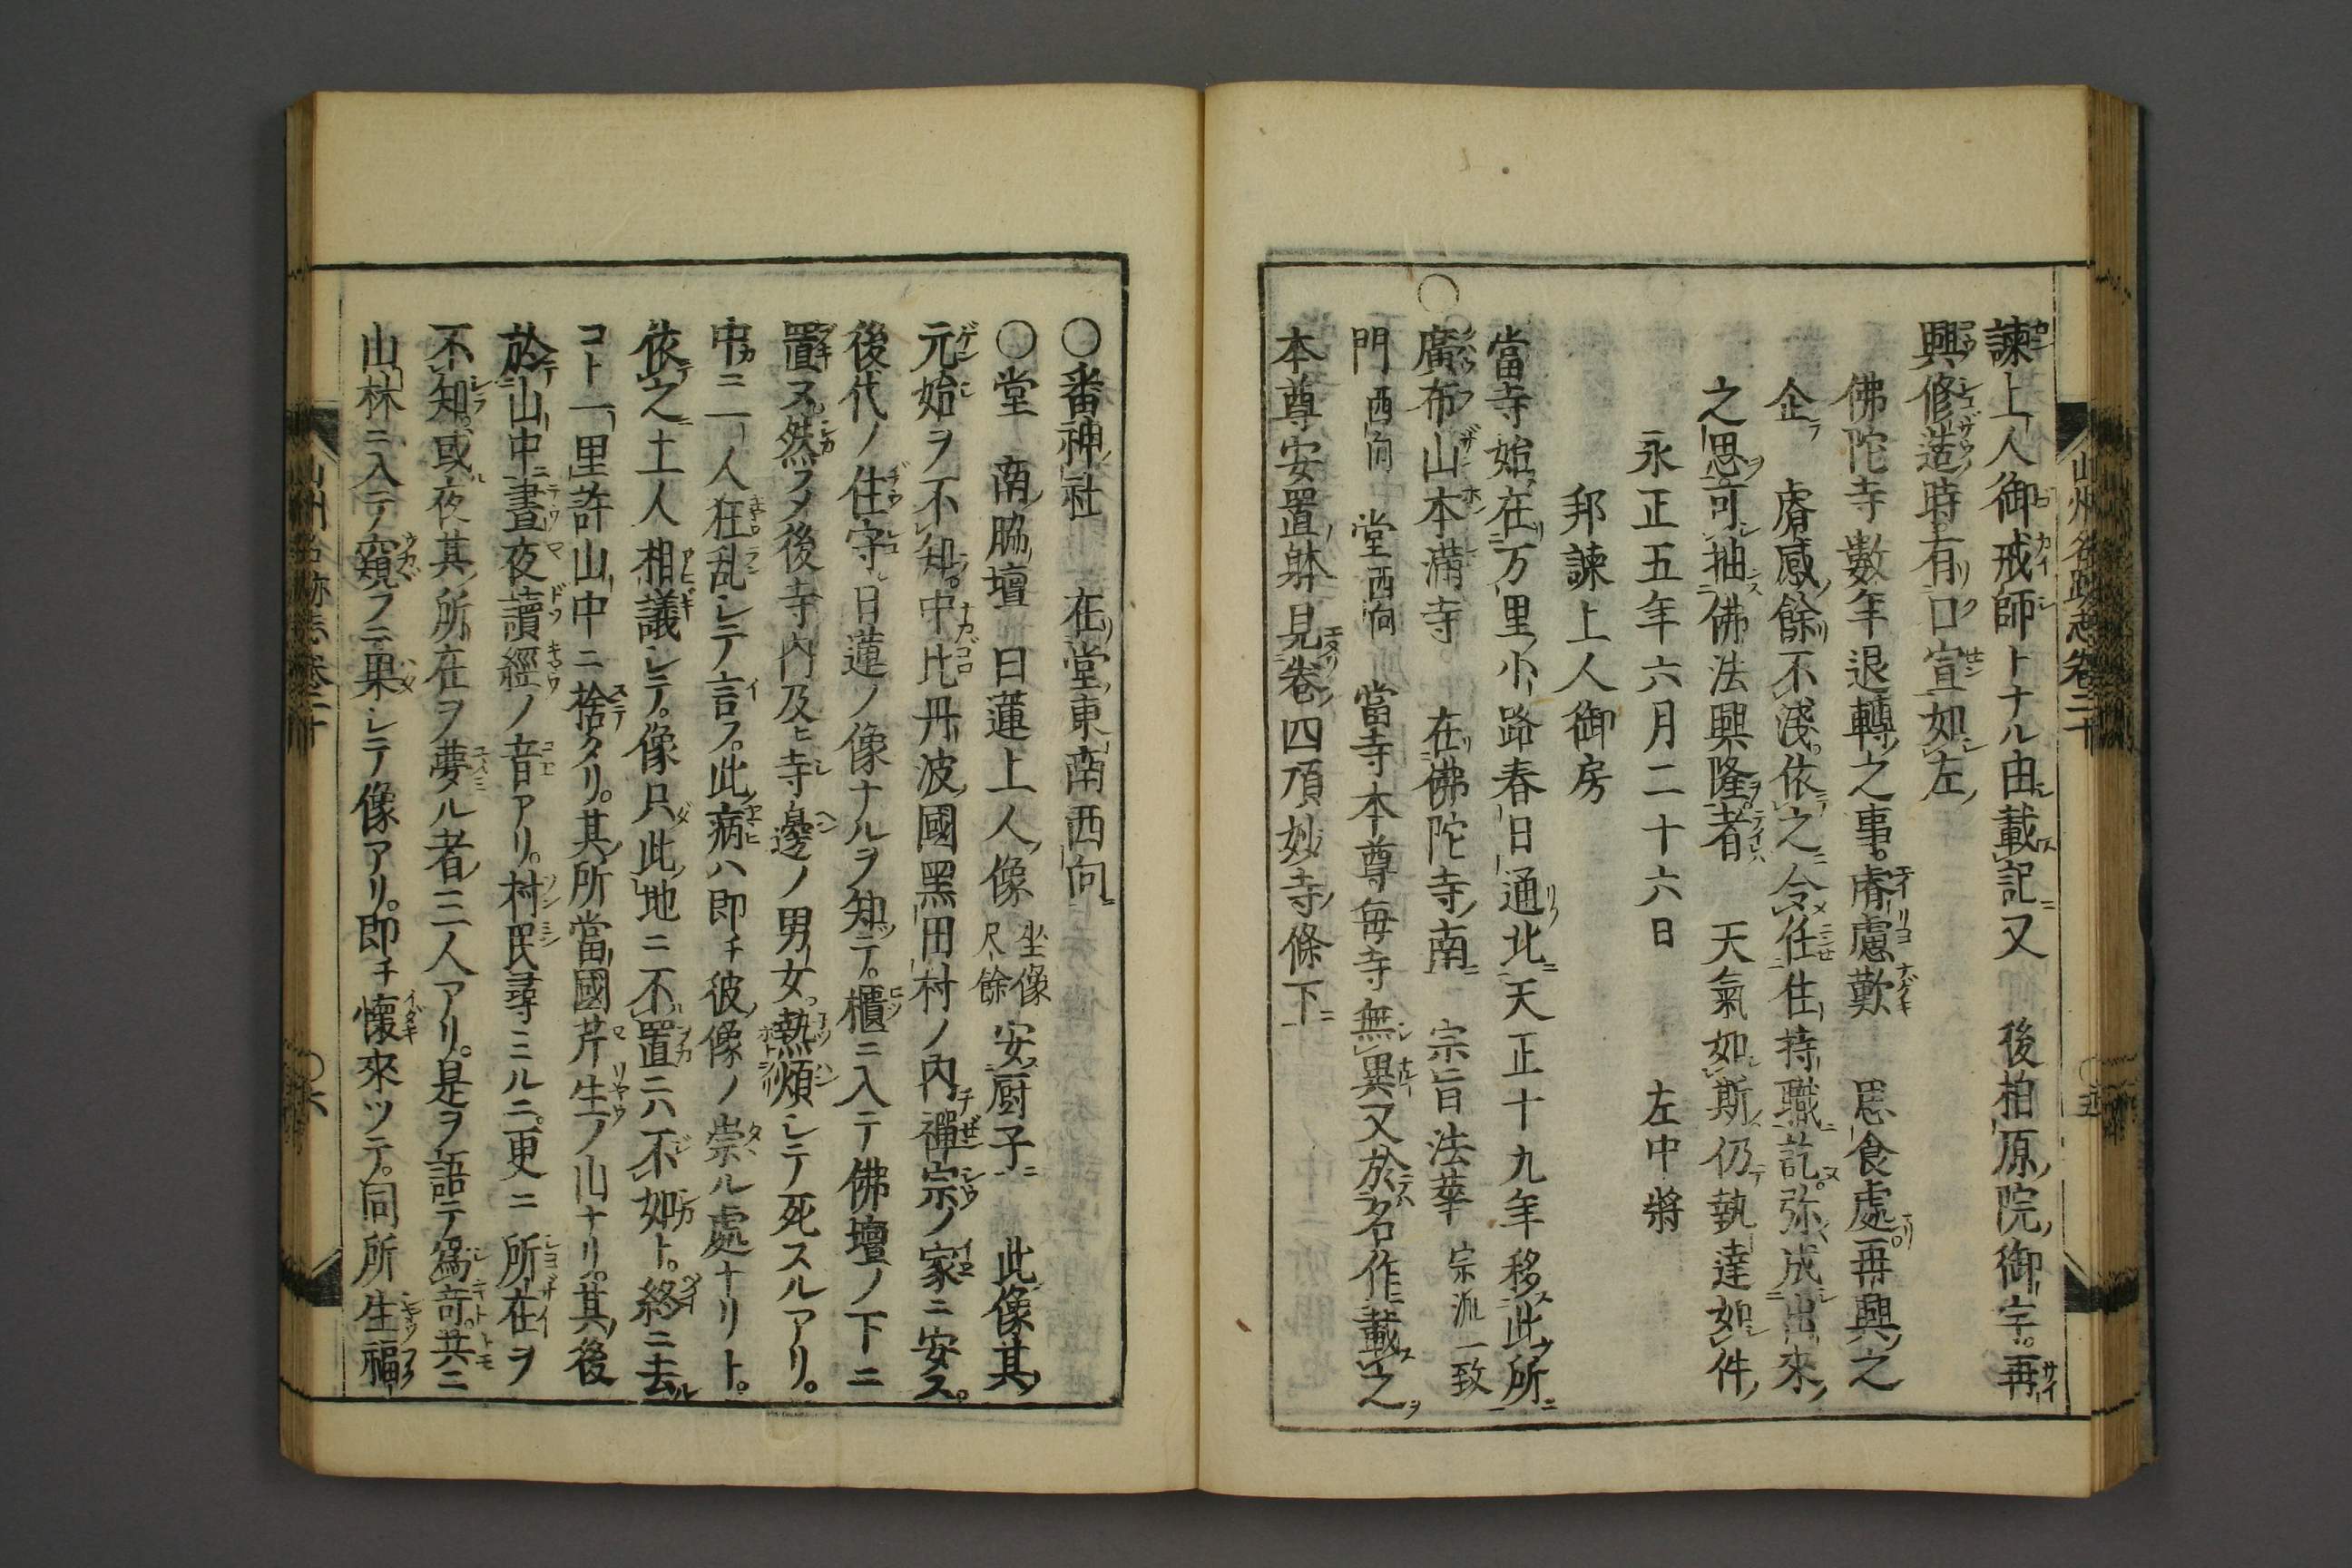 諫上人御戒師トナル由載記又　後柏原院御宇。再
興修造時。有口宣如左
佛陀寺數年退轉之事。睿慮歎　思食處。再興之
企　睿感餘不淺。依之令任住持職訖。弥成出來
之思可抽佛法興隆者　天氣如斯仍執達如件
永正五年六月二十六日　左中將
邦諫上人御房
當寺始在万里小路春日通北天正十九年移此所
○廣布山本滿寺　在佛陀寺南　宗旨法華　宗派一致
門　西向　堂　西向　當寺本尊毎寺無異又於名作載之
本尊安置躰見卷四頂妙寺條下
山州名跡志卷二十　○五
○番神社　在堂東南西向
○堂　南脇壇日蓮上人像　坐像尺餘　安厨子　此像其
元始ヲ不知。中比丹波國黑田村ノ內禪宗ノ家ニ安ス。
後代ノ住守日蓮ノ像ナルヲ知テ。櫃ニ入テ佛壇ノ下ニ
置ヌ。然フメ後寺內及ヒ寺邊ノ男女。熱煩シテ死スルアリ。
中ニ一人狂乱シテ言フ。此病ハ即チ彼像ノ崇ル處ナリト。
依之土人相議シテ。像只此地ニ不置ニハ不如ト。終ニ去ル
コト一里許山中ニ捨タリ。其所當國芹生ノ山ナリ。其後
於山中晝夜讀經ノ音アリ。村民尋ミルニ。更ニ所在ヲ
不知。或夜其所在ヲ夢ル者三人アリ。是ヲ語テ爲奇。共ニ
山林ニ入テ窺フニ果シテ像アリ。即チ懷來ツテ。同所生福
山州名跡志卷二十　○六